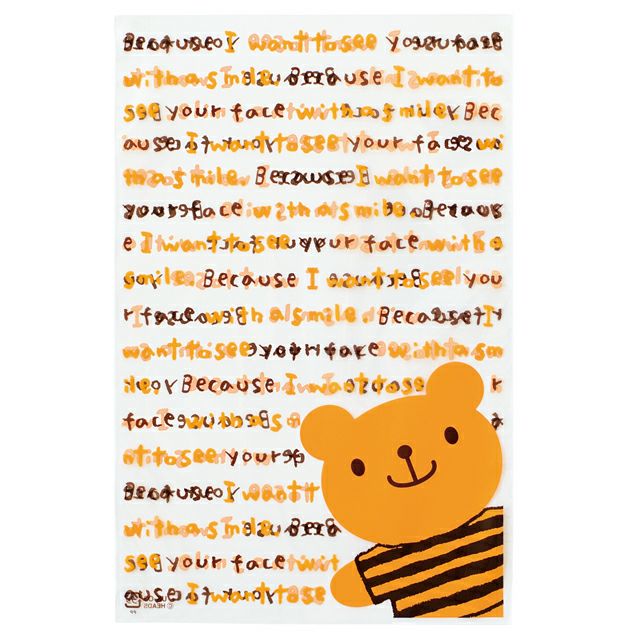 Because I want to see your face
with a smile. Because I want to
see your face with a smile. Bec
ause I want to see your face wi
th a smile. Because I want to see
your face with a smile. Becaus
e I want to see your face with a
smile. Because I want to see you
r face with a smile. Because I
want to see your face with a sm
ile. Because I want to see
face with a s
nt to see your
Because I want t
with a smile. Beca
see your face wit
ause I want to se
© HEADS
PP